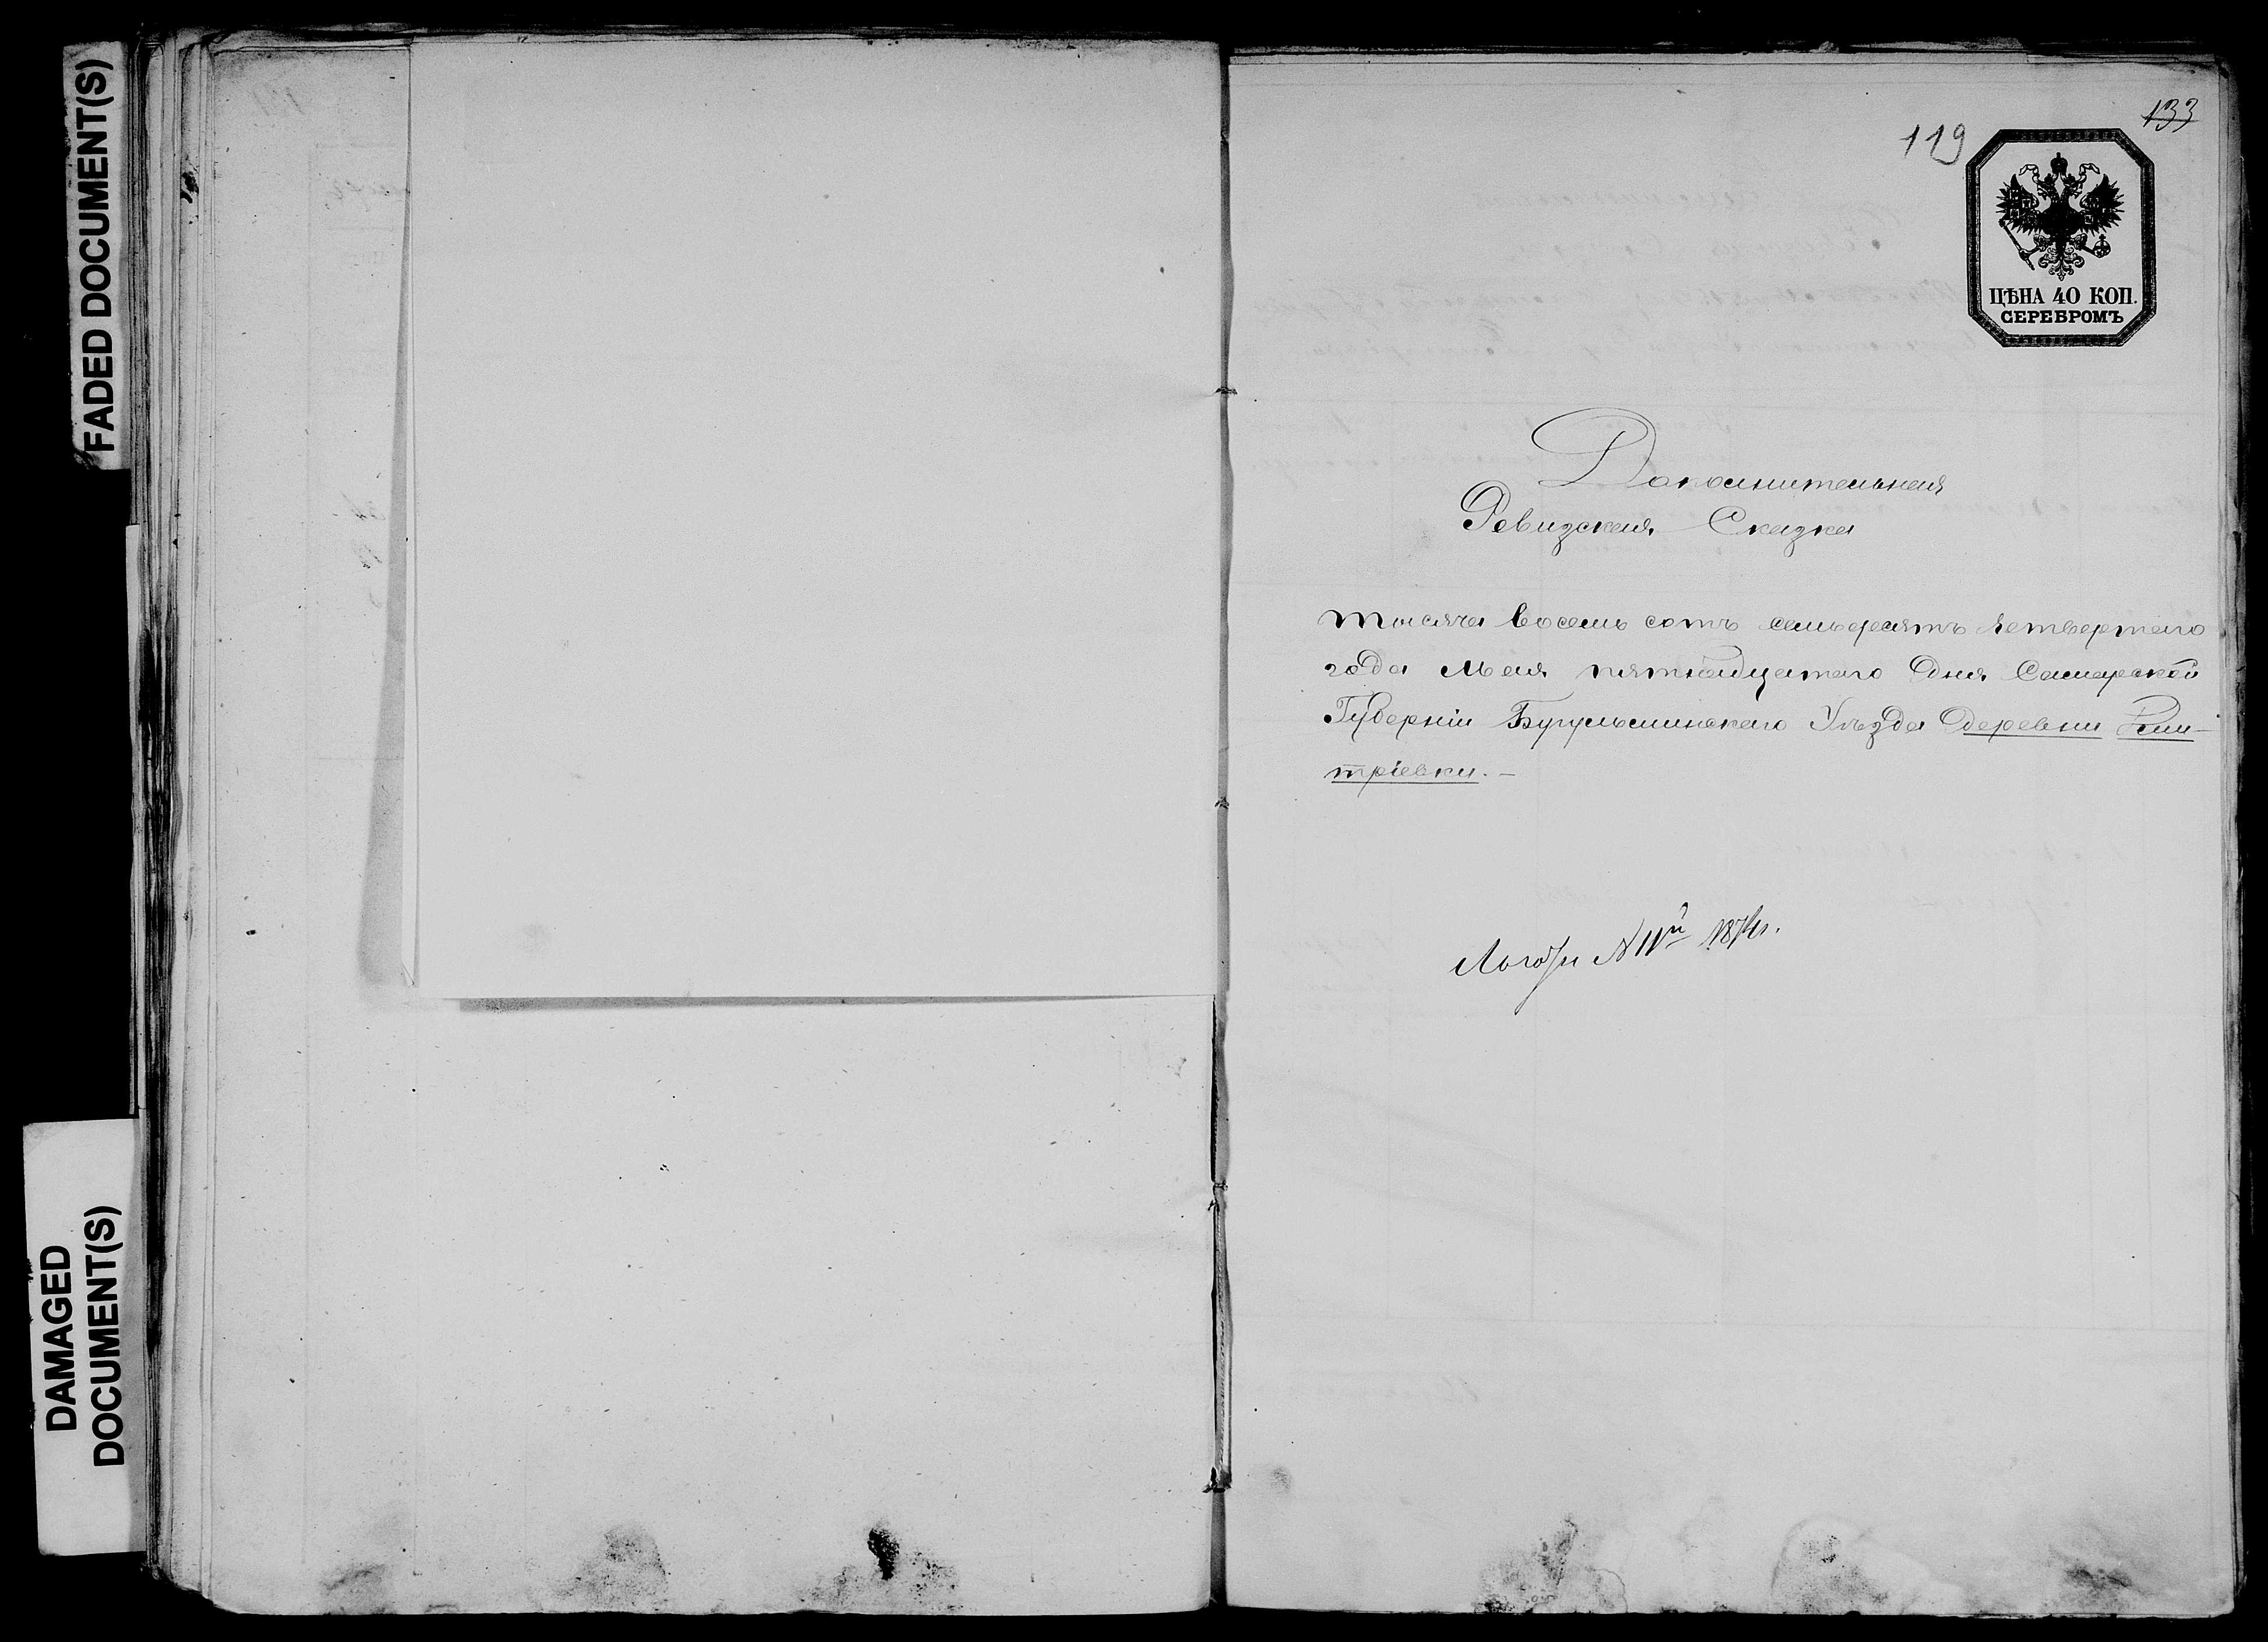 FADED DOCUMENT(S)
DAMAGED
DOCUMENT(S)
133
119
ЦѢНА 40 КОП.
СЕРЕБРОМЪ
Дополнительная
Ревизская Сказка
тысяча восемь сотъ семьдесятъ четвертаго
года Мая пятнадцатаго дня Самарской
Губерніи Бугульминскаго Уѣзда деревни Дми-
тріевки. —
N 11й 1874г.